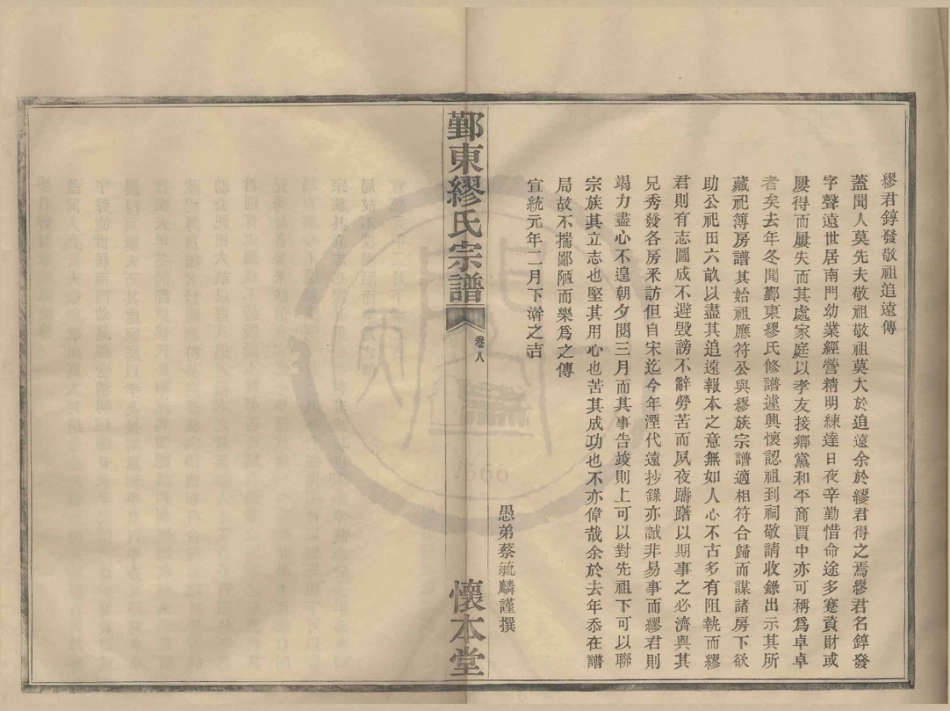 繆君錞發敬祖追遠傳
蓋聞人莫先夫敬祖敬祖莫大於追遠余於繆君得之焉繆君名錞發
字聲遠世居南門幼業經營精明練達日夜辛勤惜命途多蹇資財或
屢得而屢失而其處家庭以孝友接鄉黨和平商賈中亦可稱爲卓卓
者矣去年冬聞鄞東繆氏修譜遽興懷認祖到祠敬請收錄出示其所
藏祀簿房譜其始祖應符公與繆族宗譜適相符合歸而謀諸房下欲
助公祀田六畝以盡其追遠報本之意無如人心不古多有阻執而繆
君則有志圖成不避毀謗不辭勞苦而夙夜躊躇以期事之必濟與其
兄秀發各房釆訪但自宋迄今年湮代遠抄錄亦誠非易事而繆君則
竭力盡心不遑朝夕閱三月而其事告竣則上可以對先祖下可以聯
宗族其立志也堅其用心也苦其成功也不亦偉哉余於去年忝在譜
局故不揣鄙陋而樂爲之傳
宣統元年二月下澣之吉
愚弟蔡毓麟謹撰
鄞東繆氏宗譜
卷八
懷本堂